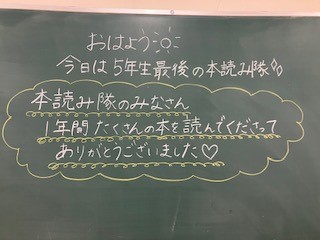 おはよう
今日は5年生最後の本読み隊
本読み隊のみなさん
1年間たくさんの本を読んでくださって
ありがとうございました♡